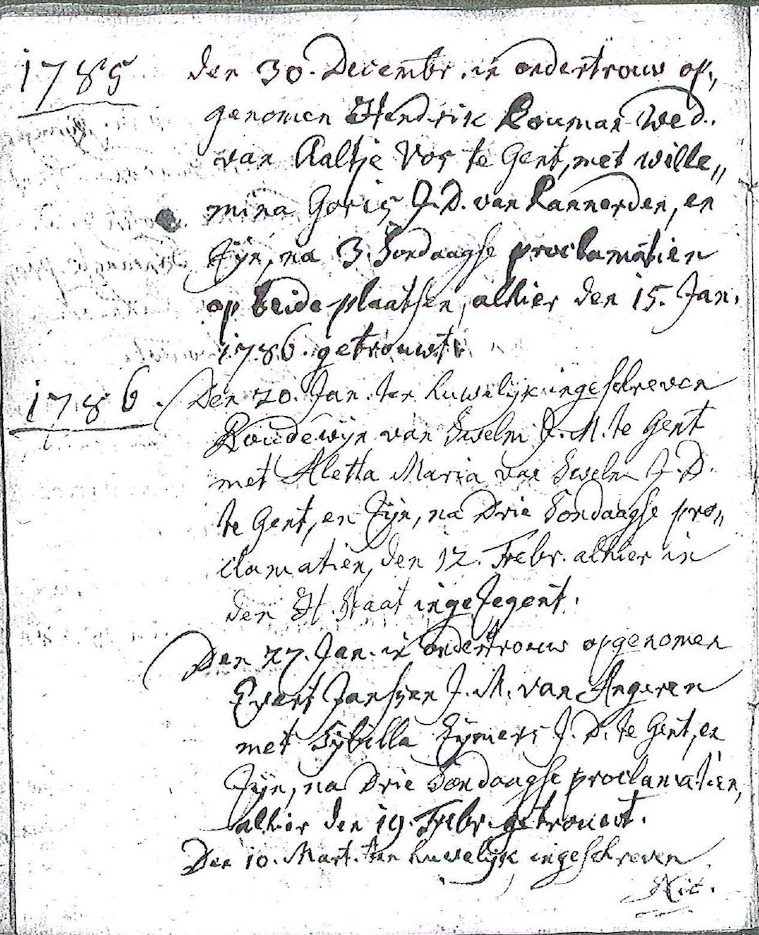 1785 den 30. Decembr. in ondertrouw op„
genomen Hendrik Bouman Wed.
van Aaltje Vos te Gent, met wille„
mina Goris J.D. van Pannerden, en
Zijn, na 3. Sondaagse proclamatien
op beide plaatsen, alhier den 15. Jan.
1786. getrouwt.
1786. Den 20. Jan. ten huwelijk ingeschreven
Boudewijn van Swelm J.M. te Gent
met Aletta Maria van Swelm J.D.
te Gent, en Zijn, na Drie Sondaagse pro„
clamatien, den 12. Febr. alhier in
den H. Staat ingesegent.
Den 27. Jan. in ondertrouw opgenomen
Evert Janssen J.M. van Angeren
met Sijbilla Eijmers J.D. te Gent, en
Zijn, na Drie Sondaagse proclamatien,
alhier den 19. Febr. getrouwt.
Den 10. Mart. ten huwelijk ingeschreven
Nic.